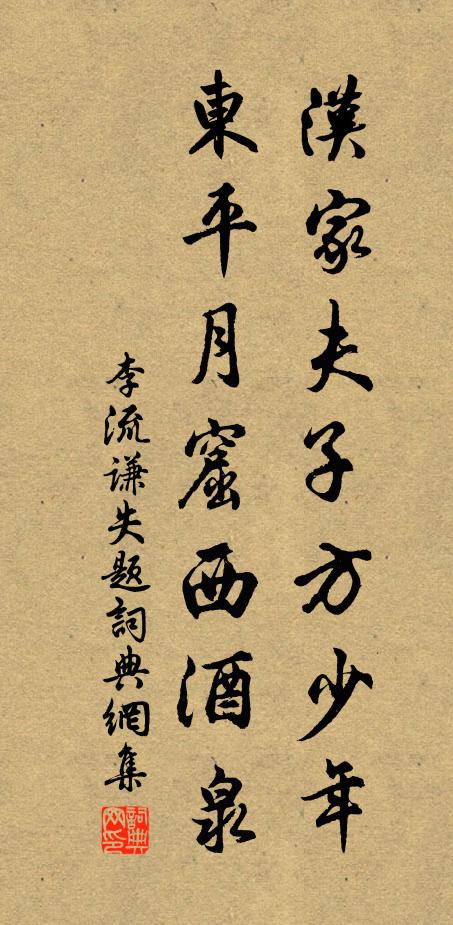 漢家夫子方少年
東平月窟西酒泉
李流謙失題詞典網集
詞典網印